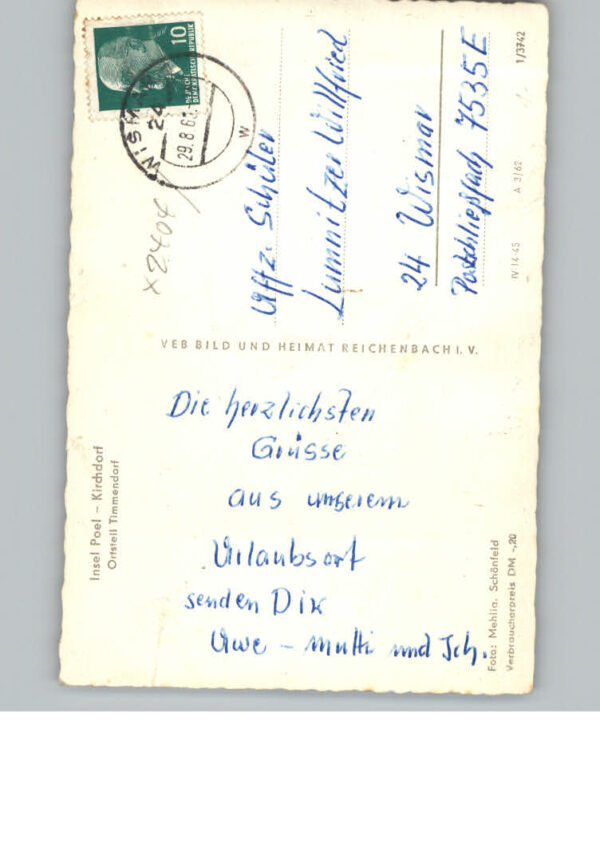 Insel Poel – Kirchdorf
Ortsteil Timmendorf
Die herzlichsten
Grüsse
aus unserem
Urlaubsort
senden Dir
Uwe – Mutti und Ich.
VEB BILD UND HEIMAT REICHENBACH I. V.
10
DEUTSCHE
DEMOKRATISCHE REPUBLIK
WISMAR
24
29.8.6
w
x2404
Uffz. Schüler
Lumnitzer Willfried
24 Wismar
Postschließfach 7535E
IV/14/45 A 3/62 1/3742
Foto: Mehlia, Schönfeld
Verbraucherpreis DM -,20